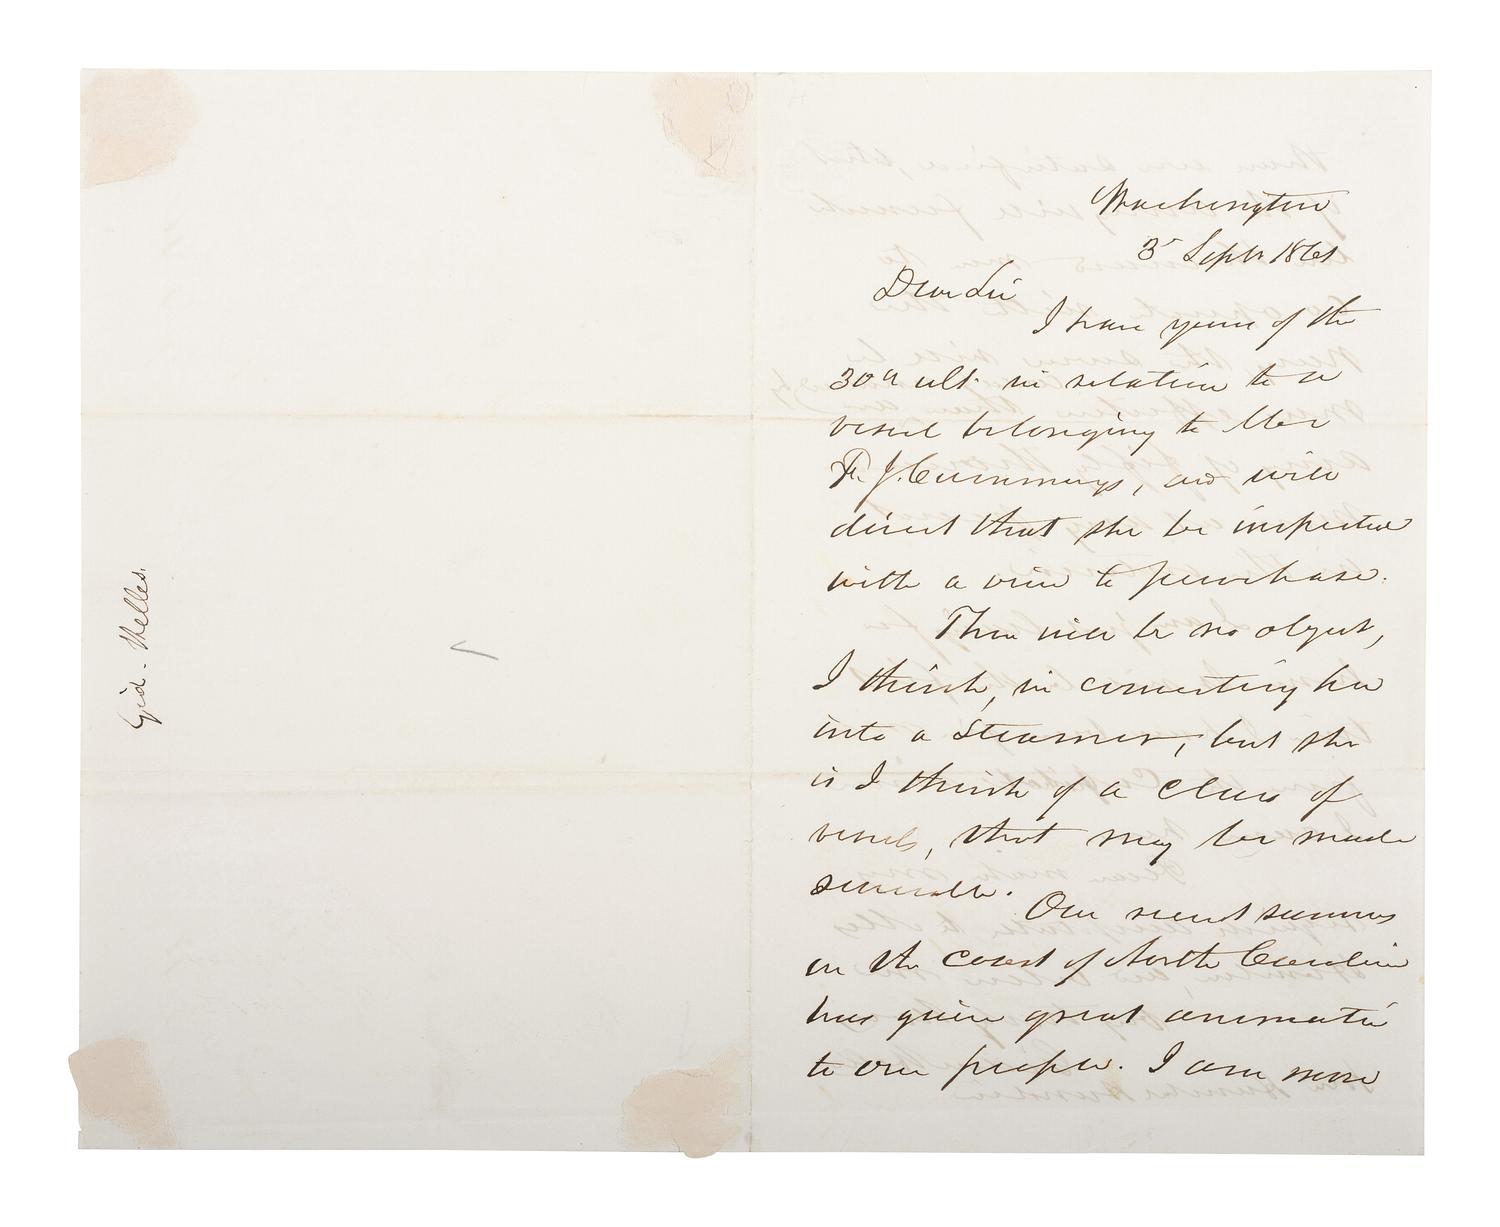 Gid. Welles.
Washington
3d Sept 1861
Dear Sir
I have yours of the
30th ult. in relation to a
vessel belonging to Mr
F. J. Cummings, and will
direct that she be inspected
with a view to purchase.
There will be no object,
I think, in converting her
into a Steamer, but she
is I think of a class of
vessels, that may be made
serviceable.
Our recent success
on the coast of North Carolina
has given great animation
to our people. I am more